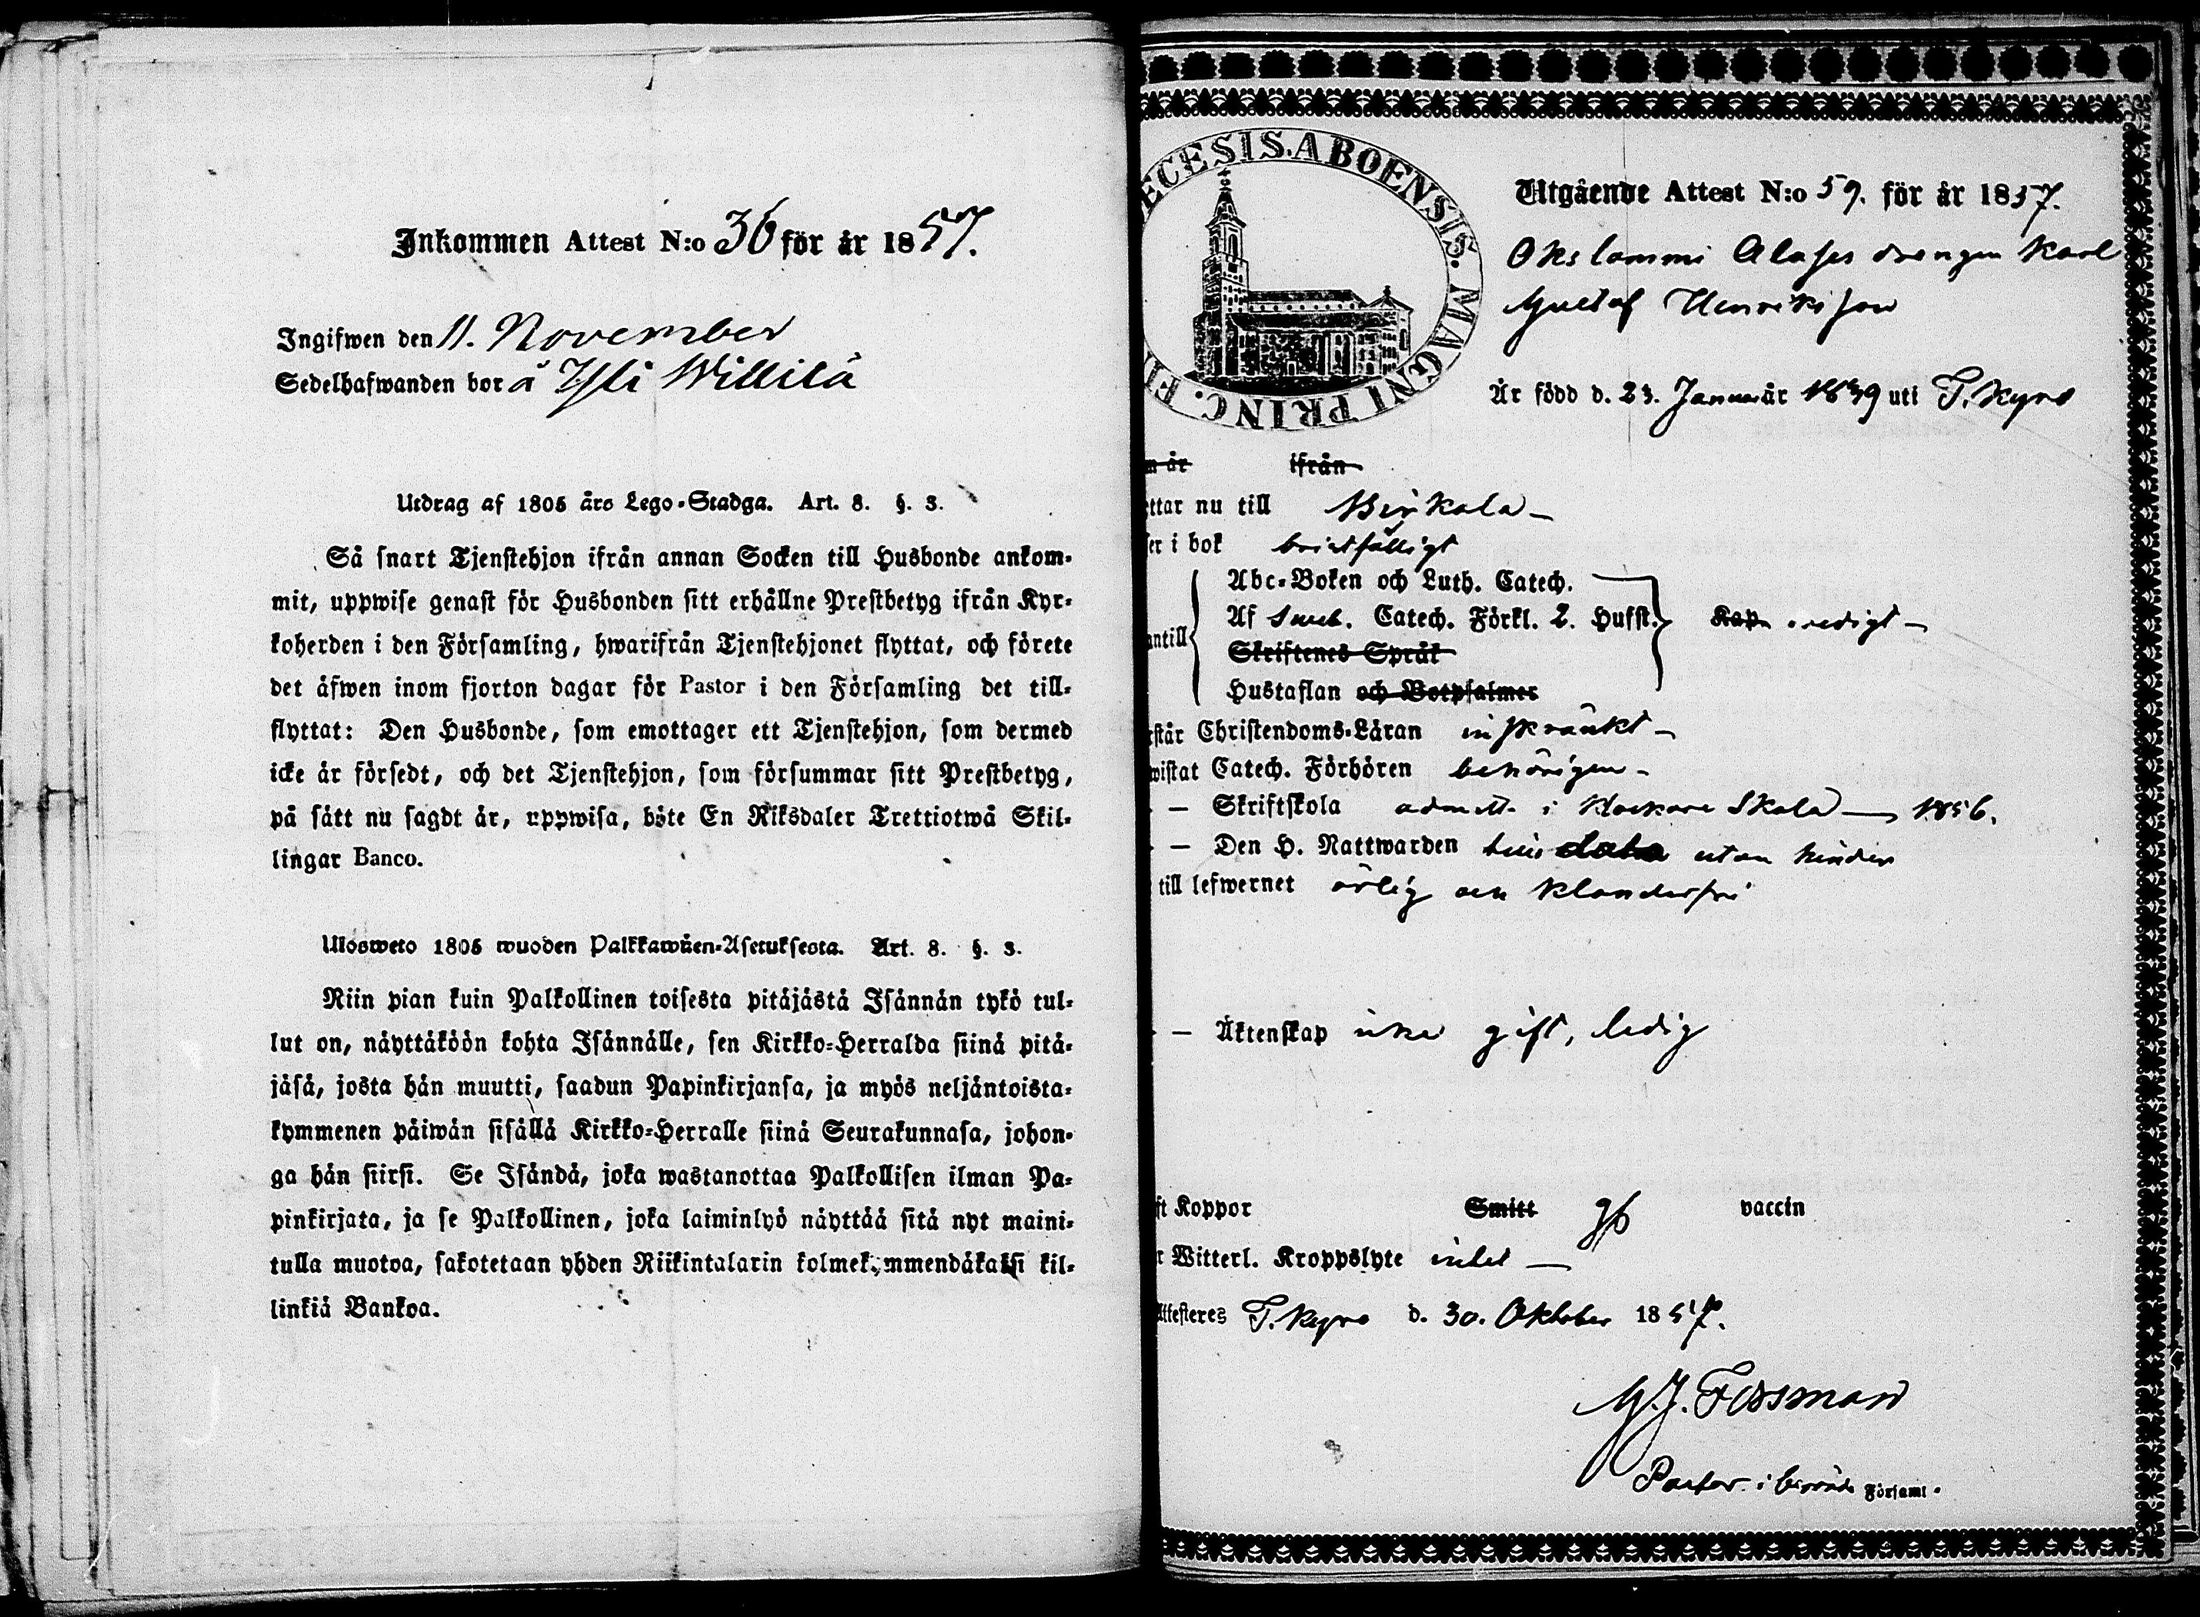 Inkommen Attest N:o 36 för år 1857.
Ingifwen den 11. November
Sedelhafwanden bor å Yli Willilä
Utdrag af 1805 års Lego-Stadga. Art. 8. §. 3.
Så snart Tjenstehjon ifrån annan Socken till Husbonde ankom-
mit, uppwise genast för Husbonden sitt erhållne Prestbetyg ifrån Kyr-
koherden i den Församling, hwarifrån Tjenstehjonet flyttat, och förete
det äfwen inom fjorton dagar för Pastor i den Församling det till-
flyttat: Den Husbonde, som emottager ett Tjenstehjon, som dermed
icke är försedt, och det Tjenstehjon, som försummar sitt Prestbetyg,
på sätt nu sagdt är, uppwisa, böte En Riksdaler Trettiotwå Skil-
lingar Banco.
Ulosweto 1805 wuoden Palkkawäen-Asetuksesta. Art. 8. §. 3.
Niin pian kuin Palkollinen toisesta pitäjästä Isännän tykö tul-
lut on, näyttäköön kohta Isännälle, sen Kirkko-Herralda siinä pitä-
jäsä, josta hän muutti, saadun Papinkirjansa, ja myös neljäntoista-
kymmenen päiwän sisällä Kirkko-Herralle siinä Seurakunnasa, johon-
ga hän siirsi. Se Isändä, joka wastanottaa Palkollisen ilman Pa-
pinkirjata, ja se Palkollinen, joka laiminlyö näyttää sitä nyt maini-
tulla muotoa, sakotetaan yhden Riikintalarin kolmekymmendäkaksi kil-
linkiä Bankoa.
ECESIS. ABOENSIS. MAGNI PRINC. FI
Utgående Attest N:o 59. för år 1857.
Okslammi Alafes drengen Karl
Gustaf Henriksson
Är född d. 23. Januari är 1839 uti T. Kyro
m år ifrån
ttar nu till Birkala
er i bok bristfälligt
Abc-Boken och Luth. Catech.
Af Sweb. Catech. Förkl. 2. Hufst. Kap. redigt
antill
Skriftenes Språk
Hustaflan och Botpsalmer
står Christendoms-Läran inskränkt
wistat Catech. Förhören behörigen
— Skriftskola admitt. i Klockare Skola 1856.
— Den H. Nattwarden utan hinder
till lefwernet ärlig och klanderfri
— Äktenskap icke gift, ledig
ft Koppor Smitt gb vaccin
r Witterl. Kroppslyte intet
Attesteres T. Kyro d. 30. Oktober 1857.
G. J. Fossman
Pastor i berörde Församl.